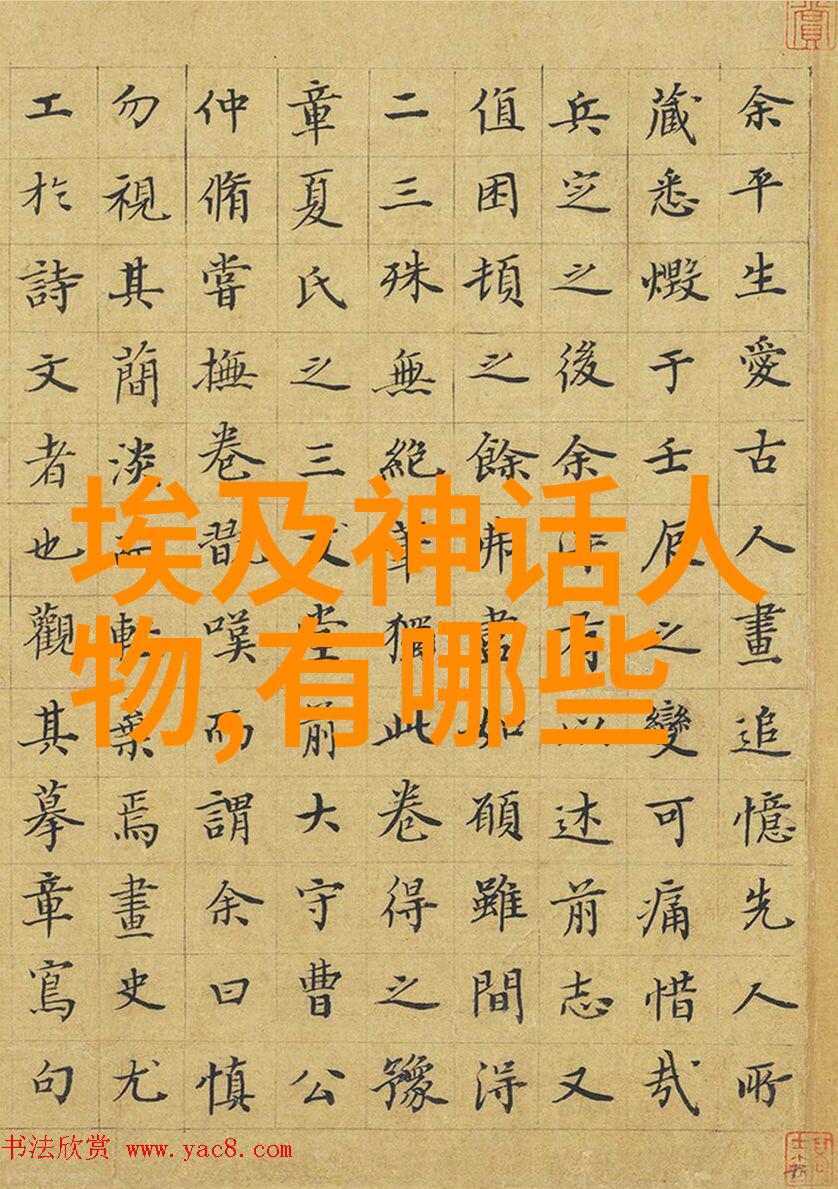 余平生愛古人畫追憶先人所
藏悉燬于壬辰之變可痛惜哉
兵定之後余有以述前志又
值困頓之餘弗盡如願雖間得
二三殊無絕筆獨此卷得之豫
章夏氏之三文堂前大守曹公
仲脩嘗撫卷翫嘆而謂余曰慎
勿視其簡淡而輕棄焉畫史尤
工於詩文者也觀其摹章寫句
埃及神话人
物,有哪些
书法欣赏 www.yac8.com